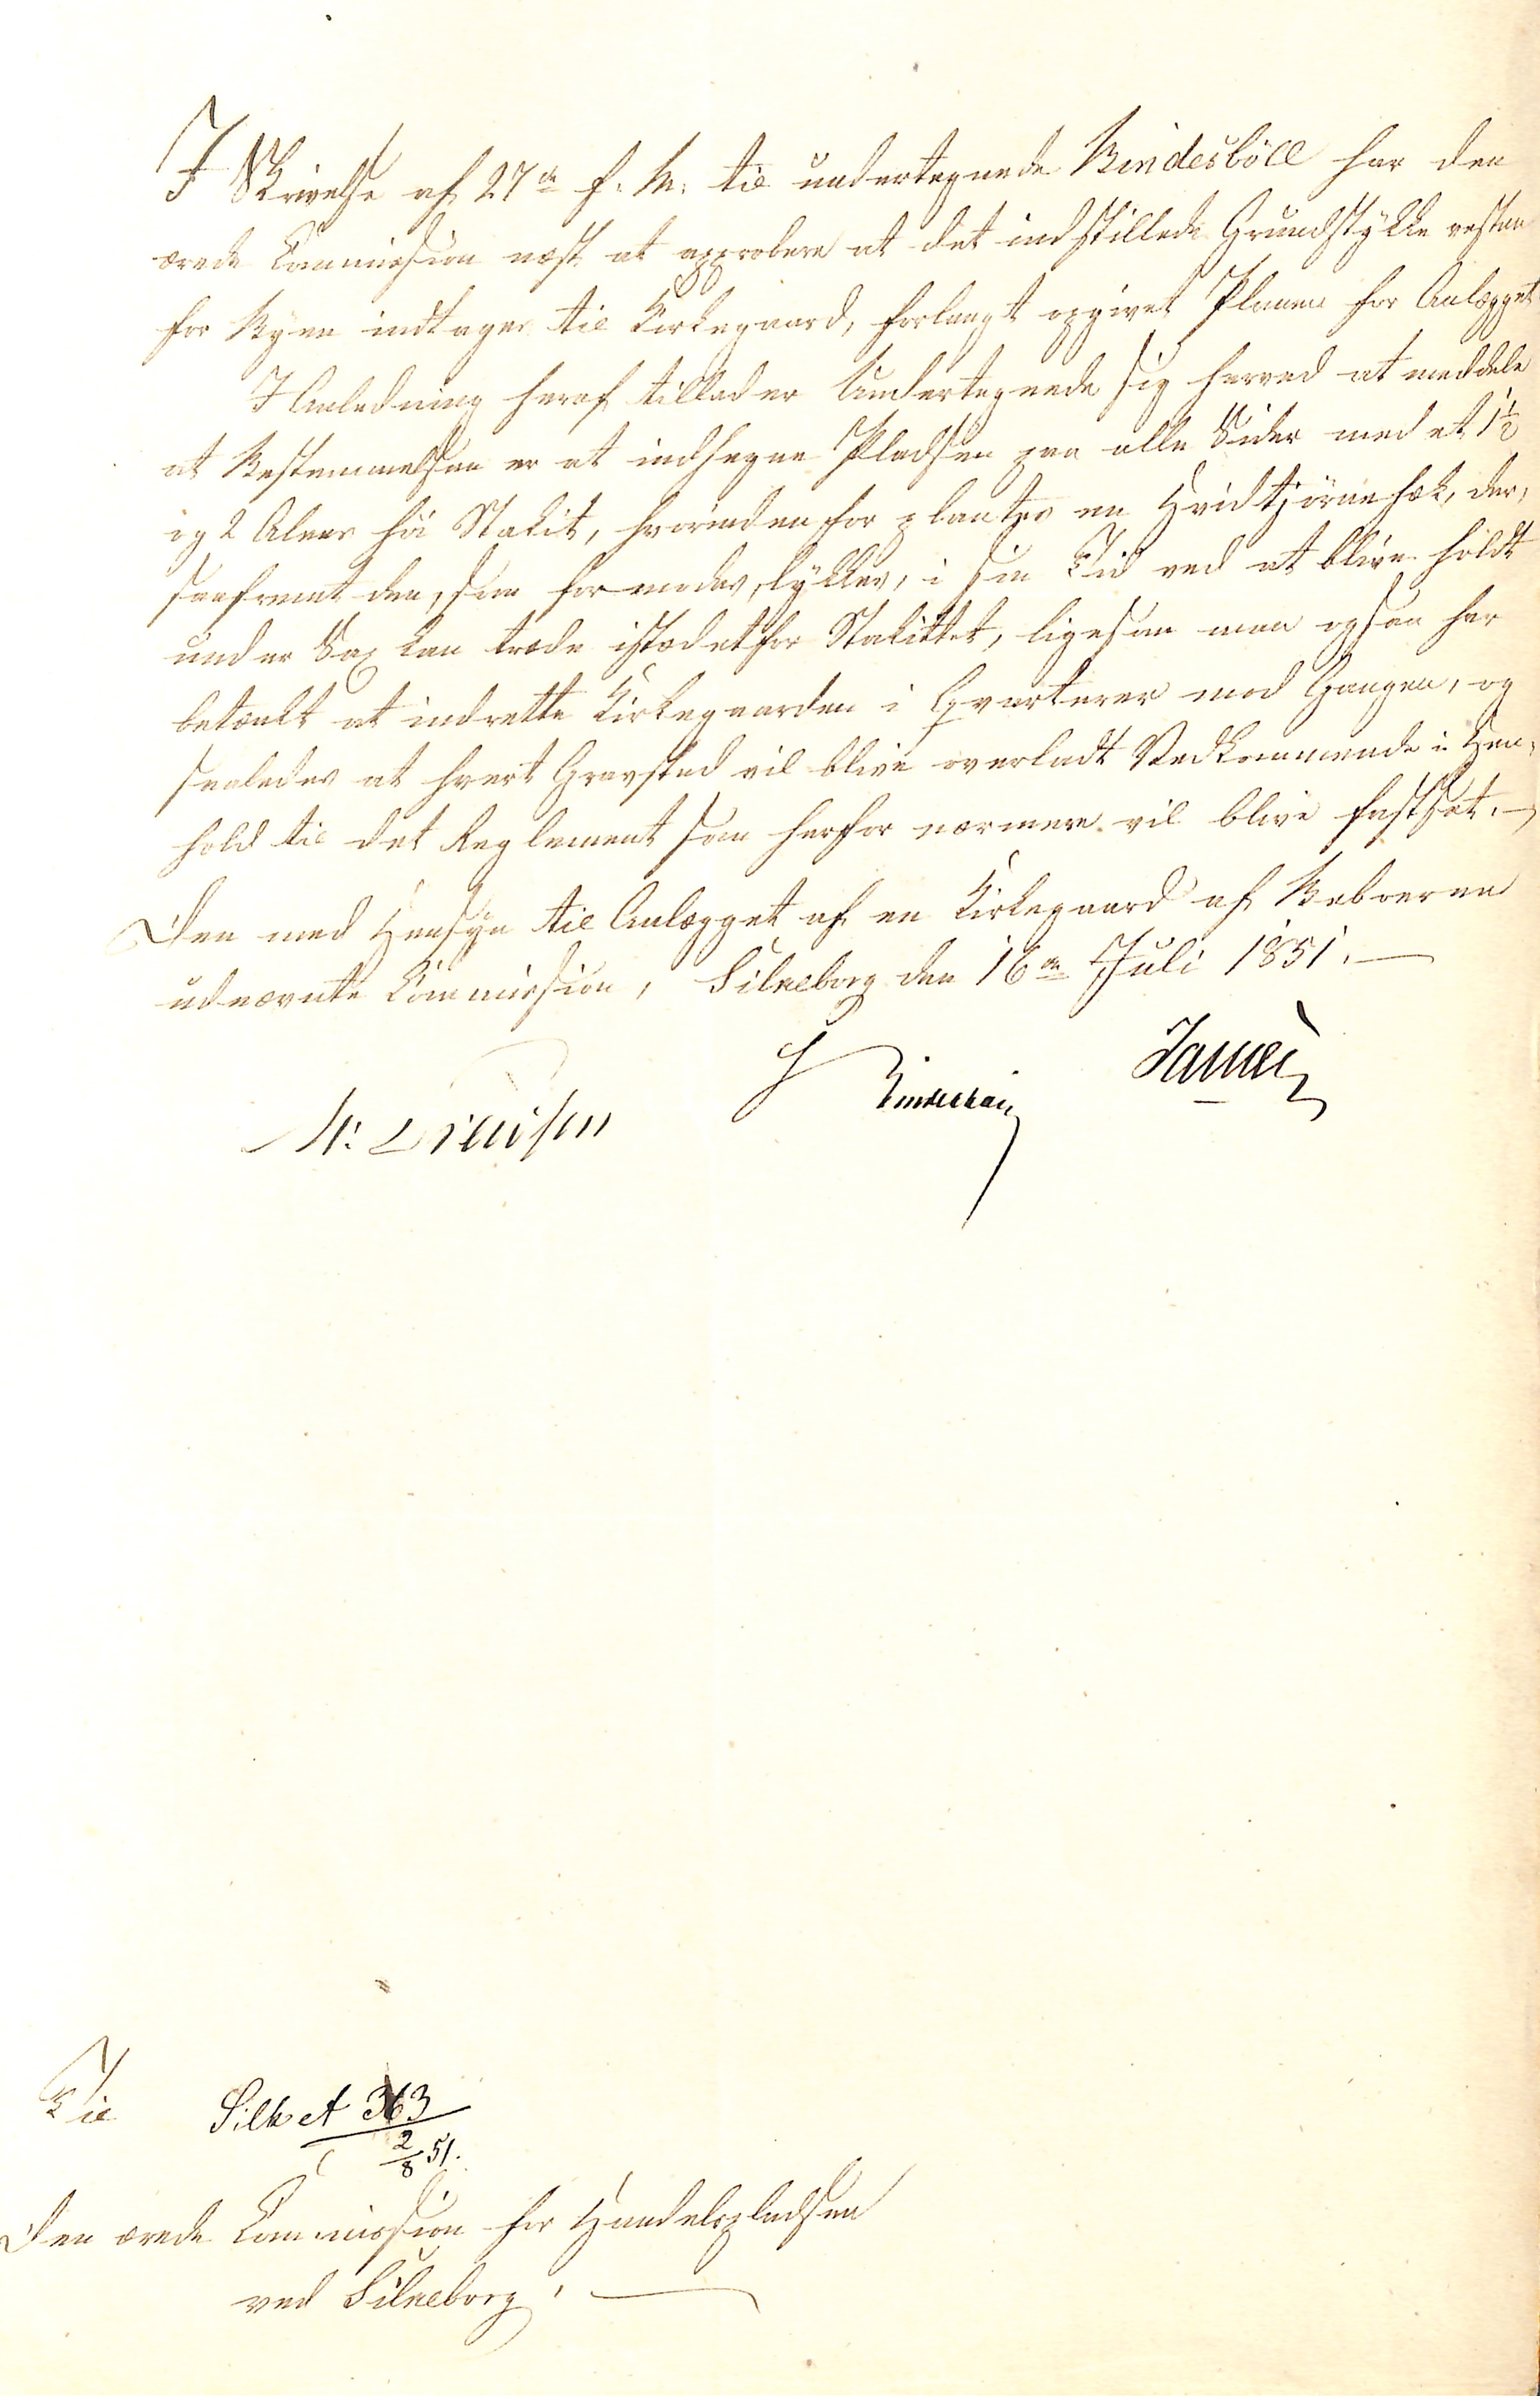 I Skrivelse af 27de f. M. til undertegnede Bindesböll har den
ærede Commission næst at approbere at det indstillede Grundstykke vesten
for Byen indtages til Kirkegaard, forlangt opgivet Planen for Anlægget
I Anledning heraf tillader Undertegnede sig herved at meddele
at Bestemmelsen er at indhegne Pladsen paa alle Sider med et 1½
og 2 Alens høi Stakit, hvorindenfor plantes en Hvidtjörnehæk, der,
saafremt den, som formodes, lykkes, i sin Tid ved at blive holdt
under Sax kan træde istædetfor Stakittet, ligesom man ogsaa har
betænkt at indrette Kirkegaarden i Qvarterer mod Gangen, og
saaledes at hvert Gravsted vil blive overladt Vedkommende i Hen-
hold til det Reglement som herfor nærmere vil blive fastsat. —
Den med Hensyn til Anlægget af en Kirkegaard af Beboerne
udnævnte Commission, Silkeborg den 16de Juli 1851. —
Bindesböll
Til
Silk et 363
2/8 51.
Den ærede Commission for Handelspladsen
ved Silkeborg. —